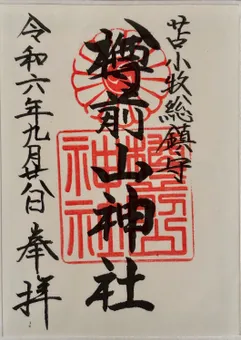 苫小牧総鎮守
樽前山神社
奉拝
令和六年九月廿八日
樽前山
神社